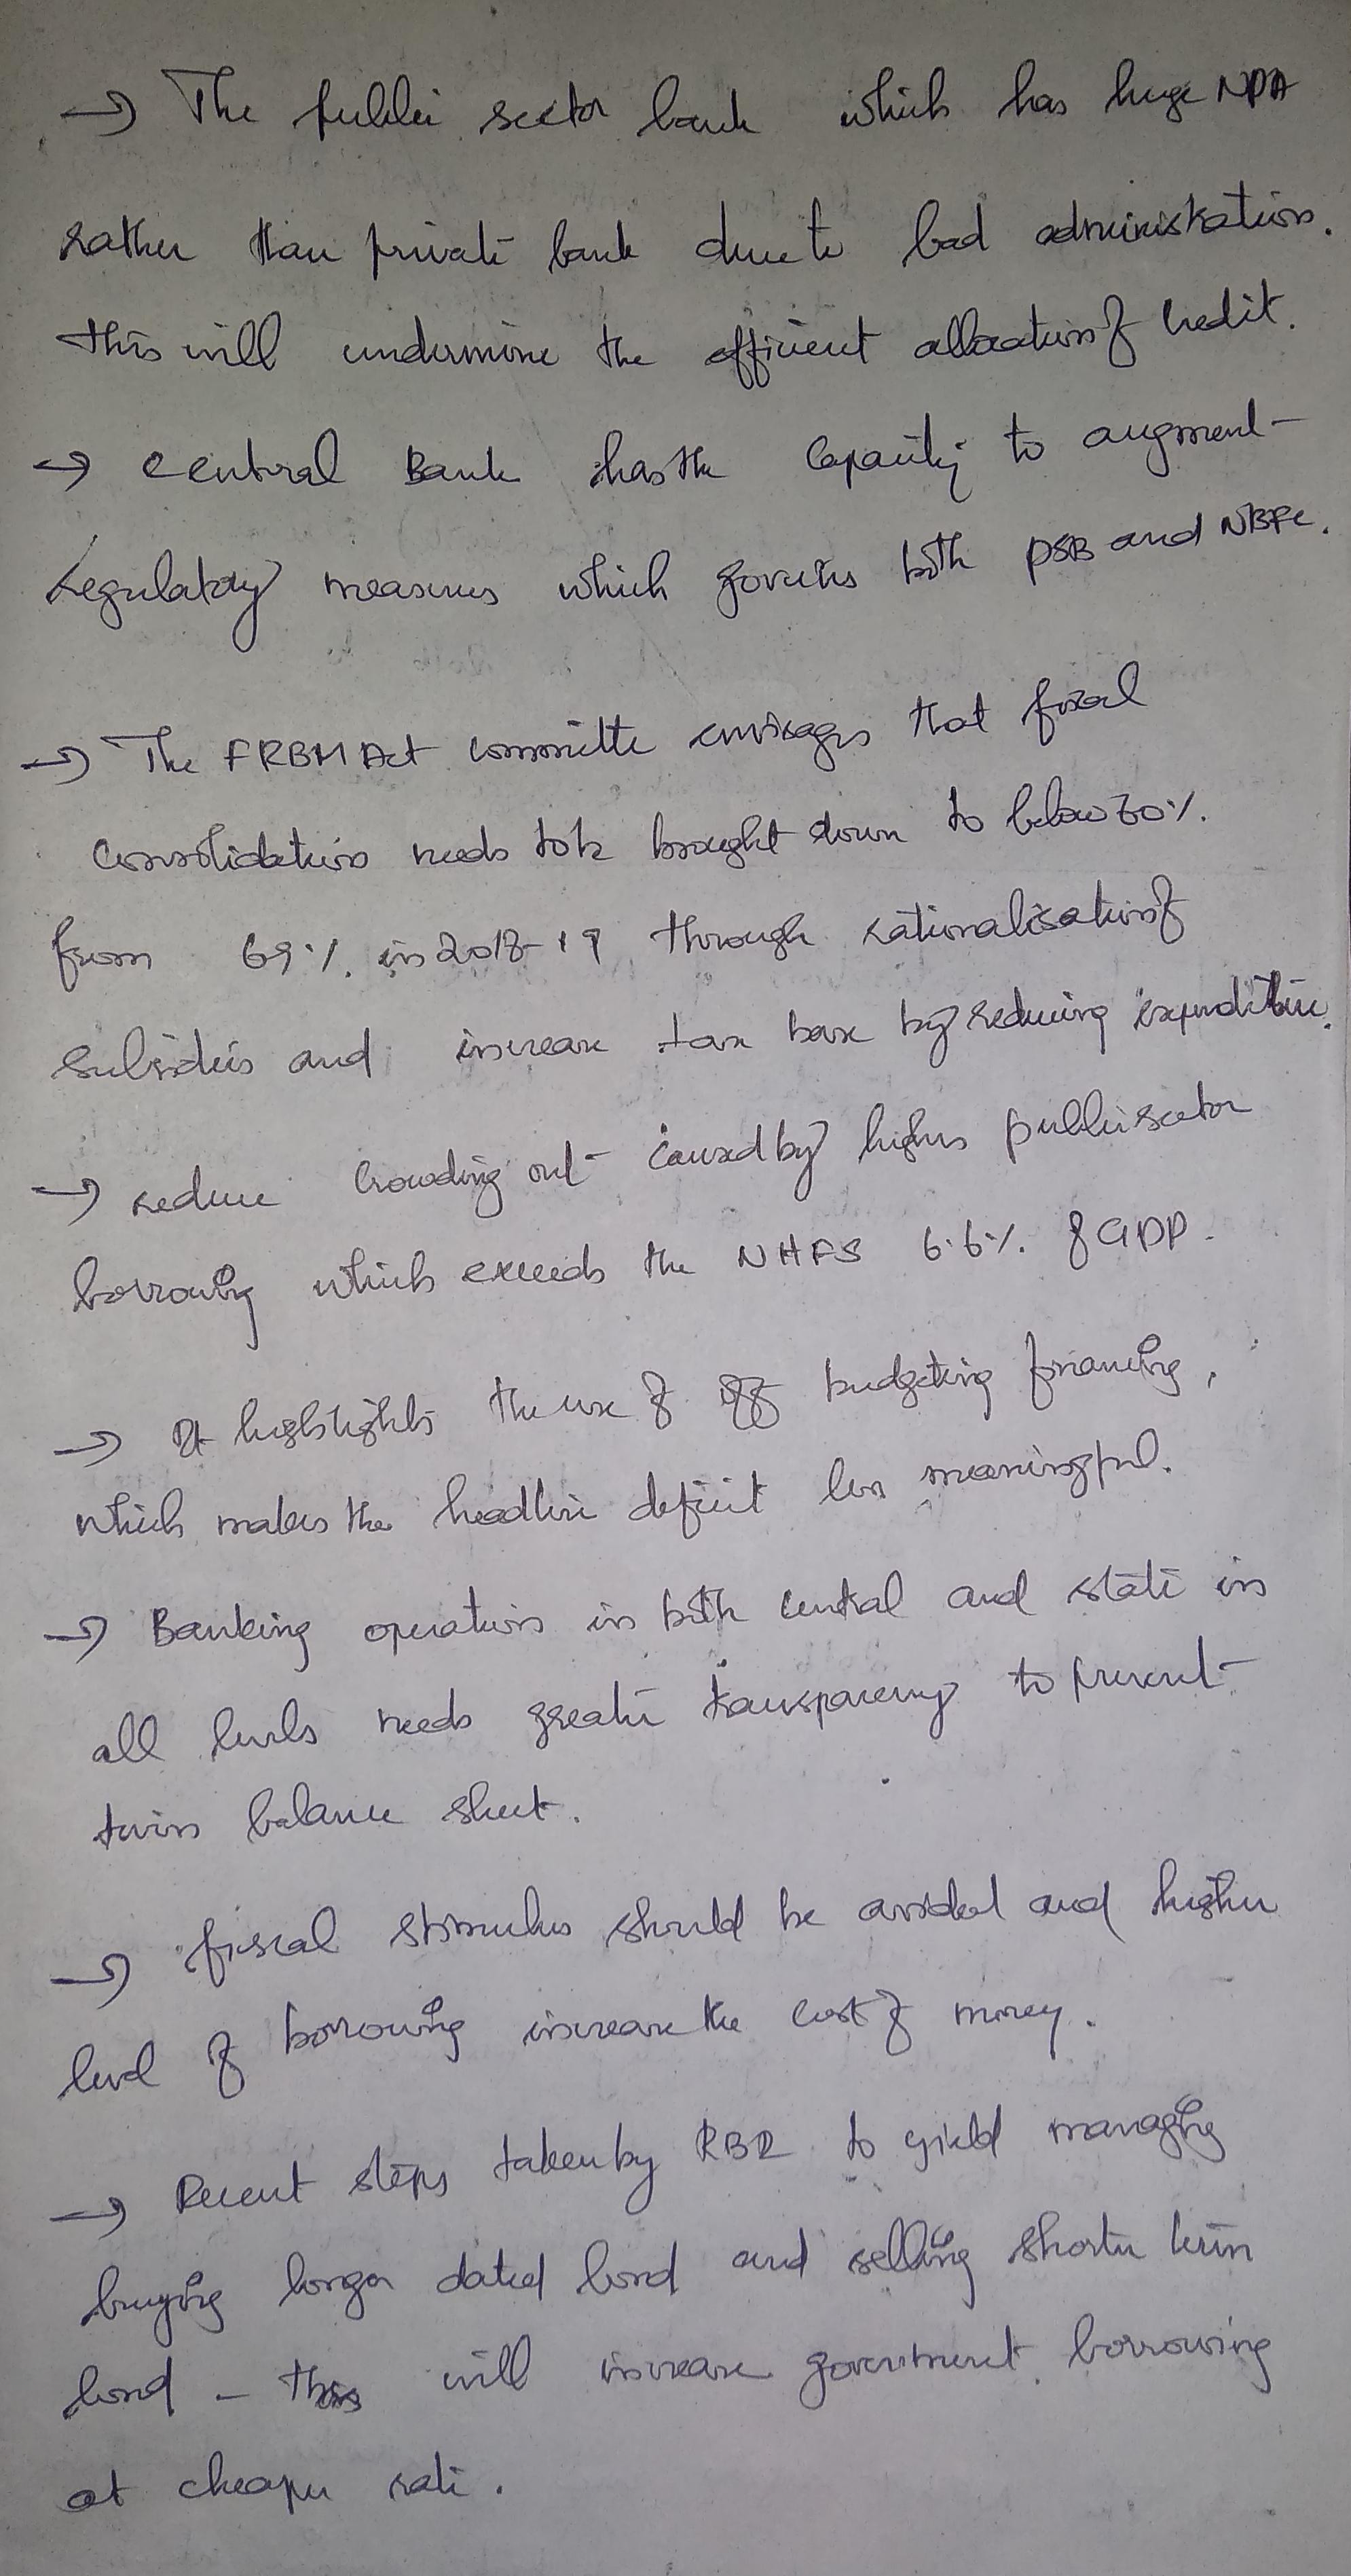 → The public sector bank which has huge NPA
rather than private bank due to bad administration.
this will undermine the efficient allocation of credit.
→ Central Bank has the capacity to augment
regulatory measures which governs both PSB and NBFC.
→ The FRBM Act committe envisages that fiscal
Consolidation needs to be brought down to below 60%.
from 69% in 2018-19 through rationalisation of
subsidies and increase tax base by reducing expenditure.
→ reduce crowding out caused by higher public sector
borrowing which exceeds the NHFS 6.6% of GDP.
→ It highlights the use of off budgeting financing,
which makes the headline deficit less meaningful.
→ Banking operations in both central and state in
all levels needs greater transparency to prevent
twin balance sheet.
→ fiscal stimulus should be avoided and higher
level of borrowing increase the cost of money.
→ Recent steps taken by RBI to yield managing
buying longer dated bond and selling shorter term
bond - this will increase government borrowing
at cheaper rate.